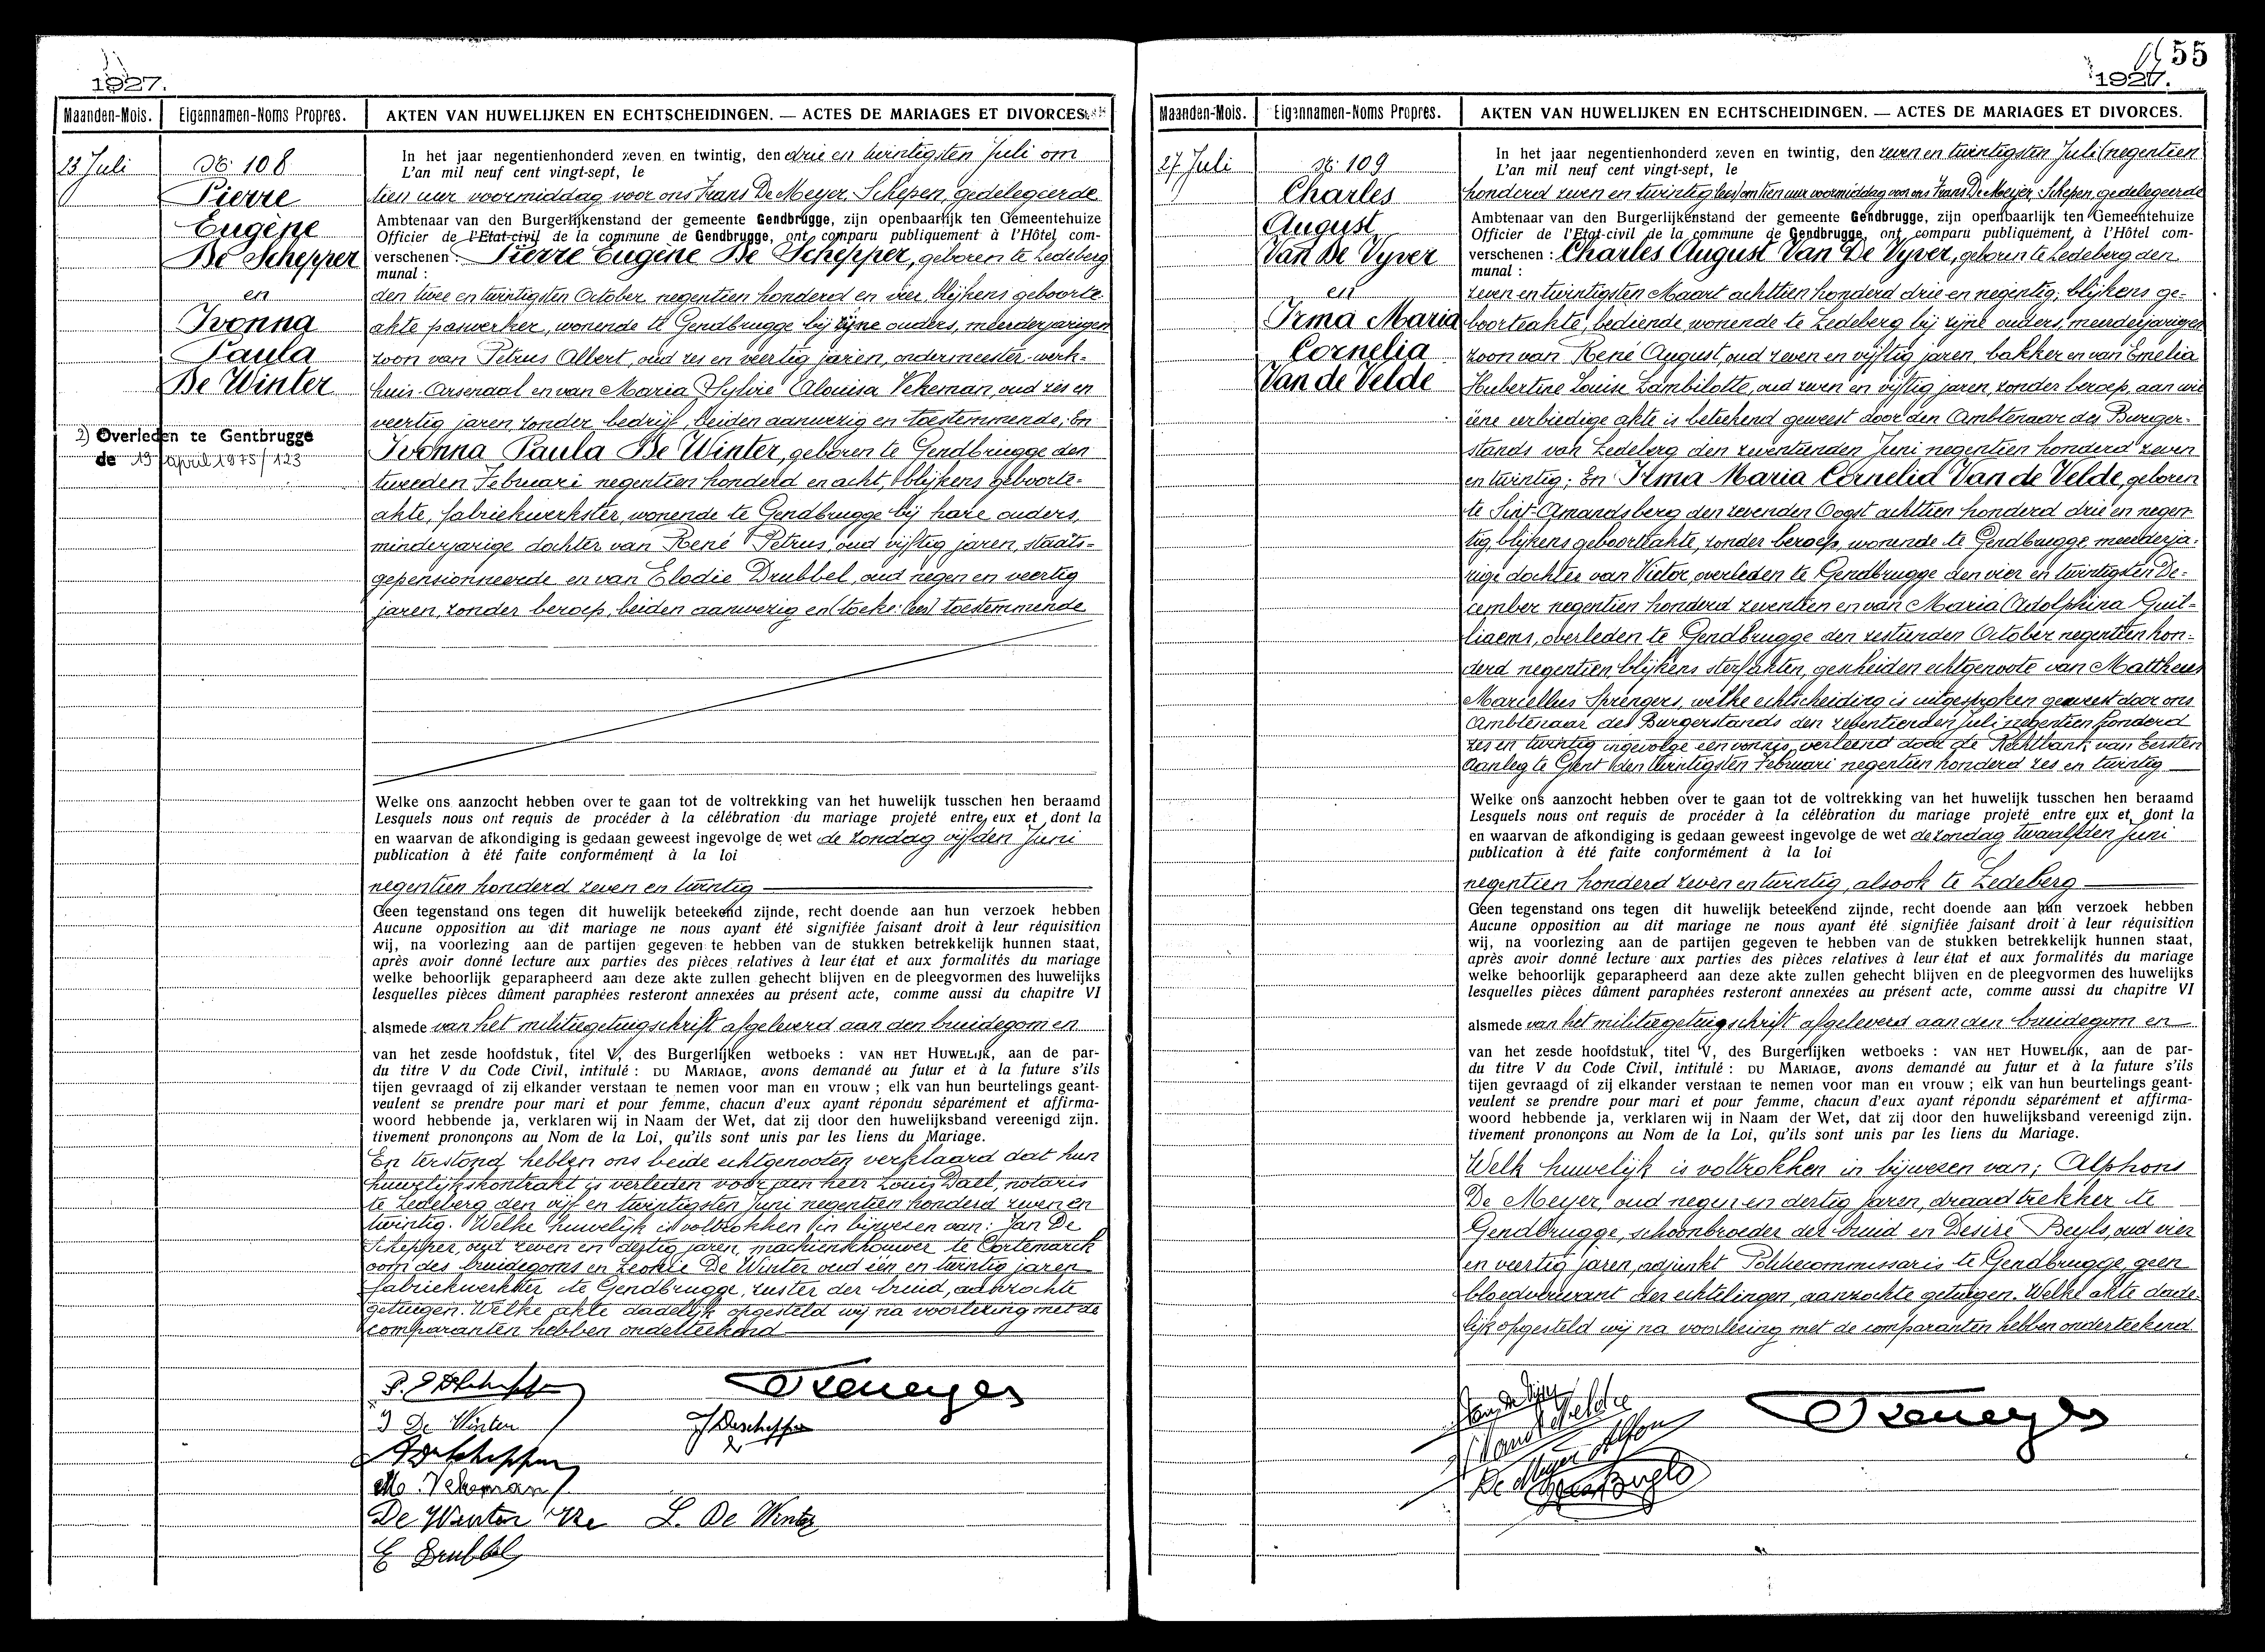 1927.
Maanden-Mois. Eigennamen-Noms Propres. AKTEN VAN HUWELIJKEN EN ECHTSCHEIDINGEN. — ACTES DE MARIAGES ET DIVORCES.
23 Juli
No 108
Pierre
Eugène
De Schepper
en
Ivonna
Paula
De Winter
2) Overleden te Gentbrugge
de 19 april 1975/123
In het jaar negentienhonderd zeven en twintig, den drie en twintigsten Juli om
L'an mil neuf cent vingt-sept, le
tien uur voormiddag voor ons Frans De Meyer, Schepen, gedelegeerde
Ambtenaar van den Burgerlijkenstand der gemeente Gendbrugge, zijn openbaarlijk ten Gemeentehuize
Officier de l'Etat-civil de la commune de Gendbrugge, ont comparu publiquement à l'Hôtel com-
verschenen : Pierre Eugène De Schepper, geboren te Ledeberg
munal :
den twee en twintigsten October negentien honderd en vier, blijkens geboorte-
akte paswerker, wonende te Gendbrugge bij zijne ouders, meerderjarigen
zoon van Petrus Albert, oud zes en veertig jaren, ondermeester-werk-
huis-Arsenaal en van Maria Sylvie Alouisa Vekeman, oud zes en
veertig jaren, zonder bedrijf, beiden aanwezig en toestemmende; En
Ivonna Paula De Winter, geboren te Gendbrugge den
tweeden Februari negentien honderd en acht, blijkens geboorte-
akte, fabriekwerkster, wonende te Gendbrugge bij hare ouders,
minderjarige dochter van René Petrus, oud vijftig jaren, staats-
gepensionneerde en van Elodie Drubbel, oud negen en veertig
jaren, zonder beroep, beiden aanwezig en (toeke: lees) toestemmende
Welke ons aanzocht hebben over te gaan tot de voltrekking van het huwelijk tusschen hen beraamd
Lesquels nous ont requis de procéder à la célébration du mariage projeté entre eux et dont la
en waarvan de afkondiging is gedaan geweest ingevolge de wet de zondag vijfden Juni
publication à été faite conformément à la loi
negentien honderd zeven en twintig
Geen tegenstand ons tegen dit huwelijk beteekend zijnde, recht doende aan hun verzoek hebben
Aucune opposition au dit mariage ne nous ayant été signifiée faisant droit à leur réquisition
wij, na voorlezing aan de partijen gegeven te hebben van de stukken betrekkelijk hunnen staat,
après avoir donné lecture aux parties des pièces relatives à leur état et aux formalités du mariage
welke behoorlijk geparapheerd aan deze akte zullen gehecht blijven en de pleegvormen des huwelijks
lesquelles pièces dûment paraphées resteront annexées au présent acte, comme aussi du chapitre VI
alsmede van het militiegetuigschrift afgeleverd aan den bruidegom en
van het zesde hoofdstuk, titel V, des Burgerlijken wetboeks : VAN HET HUWELIJK, aan de par-
du titre V du Code Civil, intitulé : DU MARIAGE, avons demandé au futur et à la future s'ils
tijen gevraagd of zij elkander verstaan te nemen voor man en vrouw ; elk van hun beurtelings geant-
veulent se prendre pour mari et pour femme, chacun d'eux ayant répondu séparément et affirma-
woord hebbende ja, verklaren wij in Naam der Wet, dat zij door den huwelijksband vereenigd zijn.
tivement prononçons au Nom de la Loi, qu'ils sont unis par les liens du Mariage.
En terstond hebben ons beide echtgenooten verklaard dat hun
huwelijkskontrakt is verleden voor den heer Louis Dael, notaris
te Ledeberg den vijf en twintigsten Juni negentien honderd zeven en
twintig. Welke huwelijk is voltrokken in bijwezen van: Jan De
Schepper, oud zeven en dertig jaren, machienbouwer te Cortemarck
oom des bruidegoms en Leonie De Winter oud één en twintig jaren
fabriekwerkster te Gendbrugge, zuster der bruid, aanzochte
getuigen. Welke akte dadelijk opgesteld wij na voorlezing met de
comparanten hebben onderteekend
P. E De Schepper
I De Winter
J Deschepper
M. Vekeman
De Winter Re L. De Winter
E Drubbel
55
1927.
Maanden-Mois. Eigennamen-Noms Propres. AKTEN VAN HUWELIJKEN EN ECHTSCHEIDINGEN. — ACTES DE MARIAGES ET DIVORCES.
27 Juli
No 109
Charles
August
Van De Vyver
en
Irma Maria
Cornelia
Van de Velde
In het jaar negentienhonderd zeven en twintig, den zeven en twintigsten Juli (negentien
L'an mil neuf cent vingt-sept, le
honderd zeven en twintig lees) om tien uur voormiddag voor ons Frans De Meyer, Schepen, gedelegeerde
Ambtenaar van den Burgerlijkenstand der gemeente Gendbrugge, zijn openbaarlijk ten Gemeentehuize
Officier de l'Etat-civil de la commune de Gendbrugge, ont comparu publiquement à l'Hôtel com-
verschenen : Charles August Van De Vyver, geboren te Ledeberg den
munal :
zeven en twintigsten Maart achttien honderd drie en negentig, blijkens ge-
boorteakte, bediende wonende te Ledeberg bij zijne ouders, meerderjarigen
zoon van René August, oud zeven en vijftig jaren, bakker en van Emelia
Hubertine Louise Lambilotte, oud zeven en vijftig jaren, zonder beroep, aan wie
eene eerbiedige akte is beteekend geweest door den Ambtenaar des Burger-
stands van Ledeberg den zeventienden Juni negentien honderd zeven
en twintig; En Irma Maria Cornelia Van de Velde, geboren
te Sint-Amandsberg den zevenden Oogst achttien honderd drie en negen-
tig, blijkens geboorteakte, zonder beroep, wonende te Gendbrugge, meerderja-
rige dochter van Victor, overleden te Gendbrugge den vier en twintigsten De-
cember negentien honderd zeventien en van Maria Adolphina Guil-
liaems, overleden te Gendbrugge den zestienden October negentien hon-
derd negentien, blijkens sterfakten, gescheiden echtgenoote van Mattheus
Marcellus Sprengers, welke echtscheiding is uitgesproken geweest door ons
Ambtenaar des Burgerstands den zeventienden Juli negentien honderd
zes en twintig ingevolge een vonnis verleend door de Rechtbank van Eersten
Aanleg te Gent den twintigsten Februari negentien honderd zes en twintig
Welke ons aanzocht hebben over te gaan tot de voltrekking van het huwelijk tusschen hen beraamd
Lesquels nous ont requis de procéder à la célébration du mariage projeté entre eux et dont la
en waarvan de afkondiging is gedaan geweest ingevolge de wet de zondag twaalfden Juni
publication à été faite conformément à la loi
negentien honderd zeven en twintig, alsook te Ledeberg
Geen tegenstand ons tegen dit huwelijk beteekend zijnde, recht doende aan hun verzoek hebben
Aucune opposition au dit mariage ne nous ayant été signifiée faisant droit à leur réquisition
wij, na voorlezing aan de partijen gegeven te hebben van de stukken betrekkelijk hunnen staat,
après avoir donné lecture aux parties des pièces relatives à leur état et aux formalités du mariage
welke behoorlijk geparapheerd aan deze akte zullen gehecht blijven en de pleegvormen des huwelijks
lesquelles pièces dûment paraphées resteront annexées au présent acte, comme aussi du chapitre VI
alsmede van het militiegetuigschrift afgeleverd aan den bruidegom en
van het zesde hoofdstuk, titel V, des Burgerlijken wetboeks : VAN HET HUWELIJK, aan de par-
du titre V du Code Civil, intitulé : DU MARIAGE, avons demandé au futur et à la future s'ils
tijen gevraagd of zij elkander verstaan te nemen voor man en vrouw ; elk van hun beurtelings geant-
veulent se prendre pour mari et pour femme, chacun d'eux ayant répondu séparément et affirma-
woord hebbende ja, verklaren wij in Naam der Wet, dat zij door den huwelijksband vereenigd zijn.
tivement prononçons au Nom de la Loi, qu'ils sont unis par les liens du Mariage.
Welk huwelijk is voltrokken in bijwezen van; Alphons
De Meyer, oud negen en dertig jaren, draadtrekker te
Gendbrugge, schoonbroeder der bruid en Desiré Beyls, oud vier
en veertig jaren, adjunkt Policecommissaris te Gendbrugge, geen
bloedverwant der echtelingen, aanzochte getuigen. Welke akte dade-
lijk opgesteld wij na voorlezing met de comparanten hebben onderteekend
Van De Vyver
I Vand Velde
De Meyer Alfons